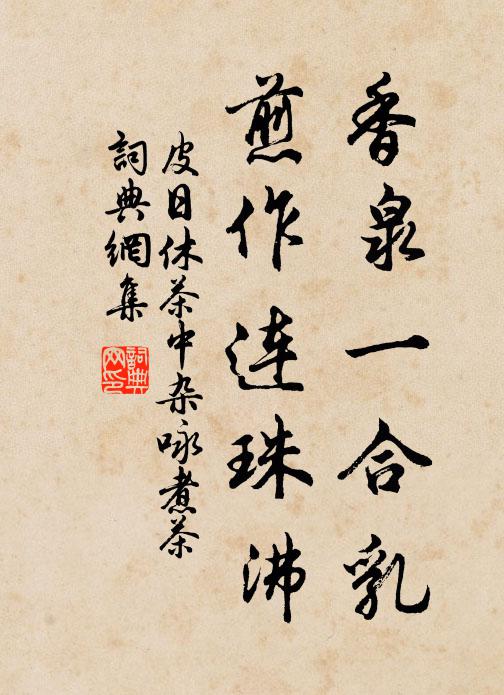 香泉一合乳
煎作連珠沸
皮日休茶中杂咏煮茶
詞典網集
詞典網印